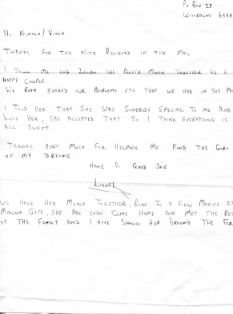 P.O. Box 28
Hi
Thanks for the note received in the mail
I think me and are made together as a
happy couple.
We both shared our problems etc that we had in the
I told her that she was somebody special to me and
love her, she accepted that so I think everything is
all sweet.
Thanks very much for helping me find the girl
of my dreams
Have a good one
Lionel
We have had together, been to a few movies at
she has even come home and met the rest
of the family and I have shown her around the